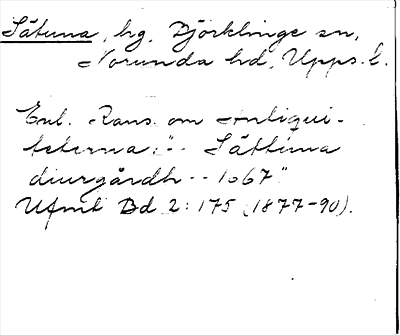 Sätuna, hg, Björklinge sn,
Norunda hd, Upps. l.
Enl. Rans. om Antiqui-
teterna: "-- Sättuna
diurgårdh -- 1667"
Ufmt Bd 2: 175 (1877-90).